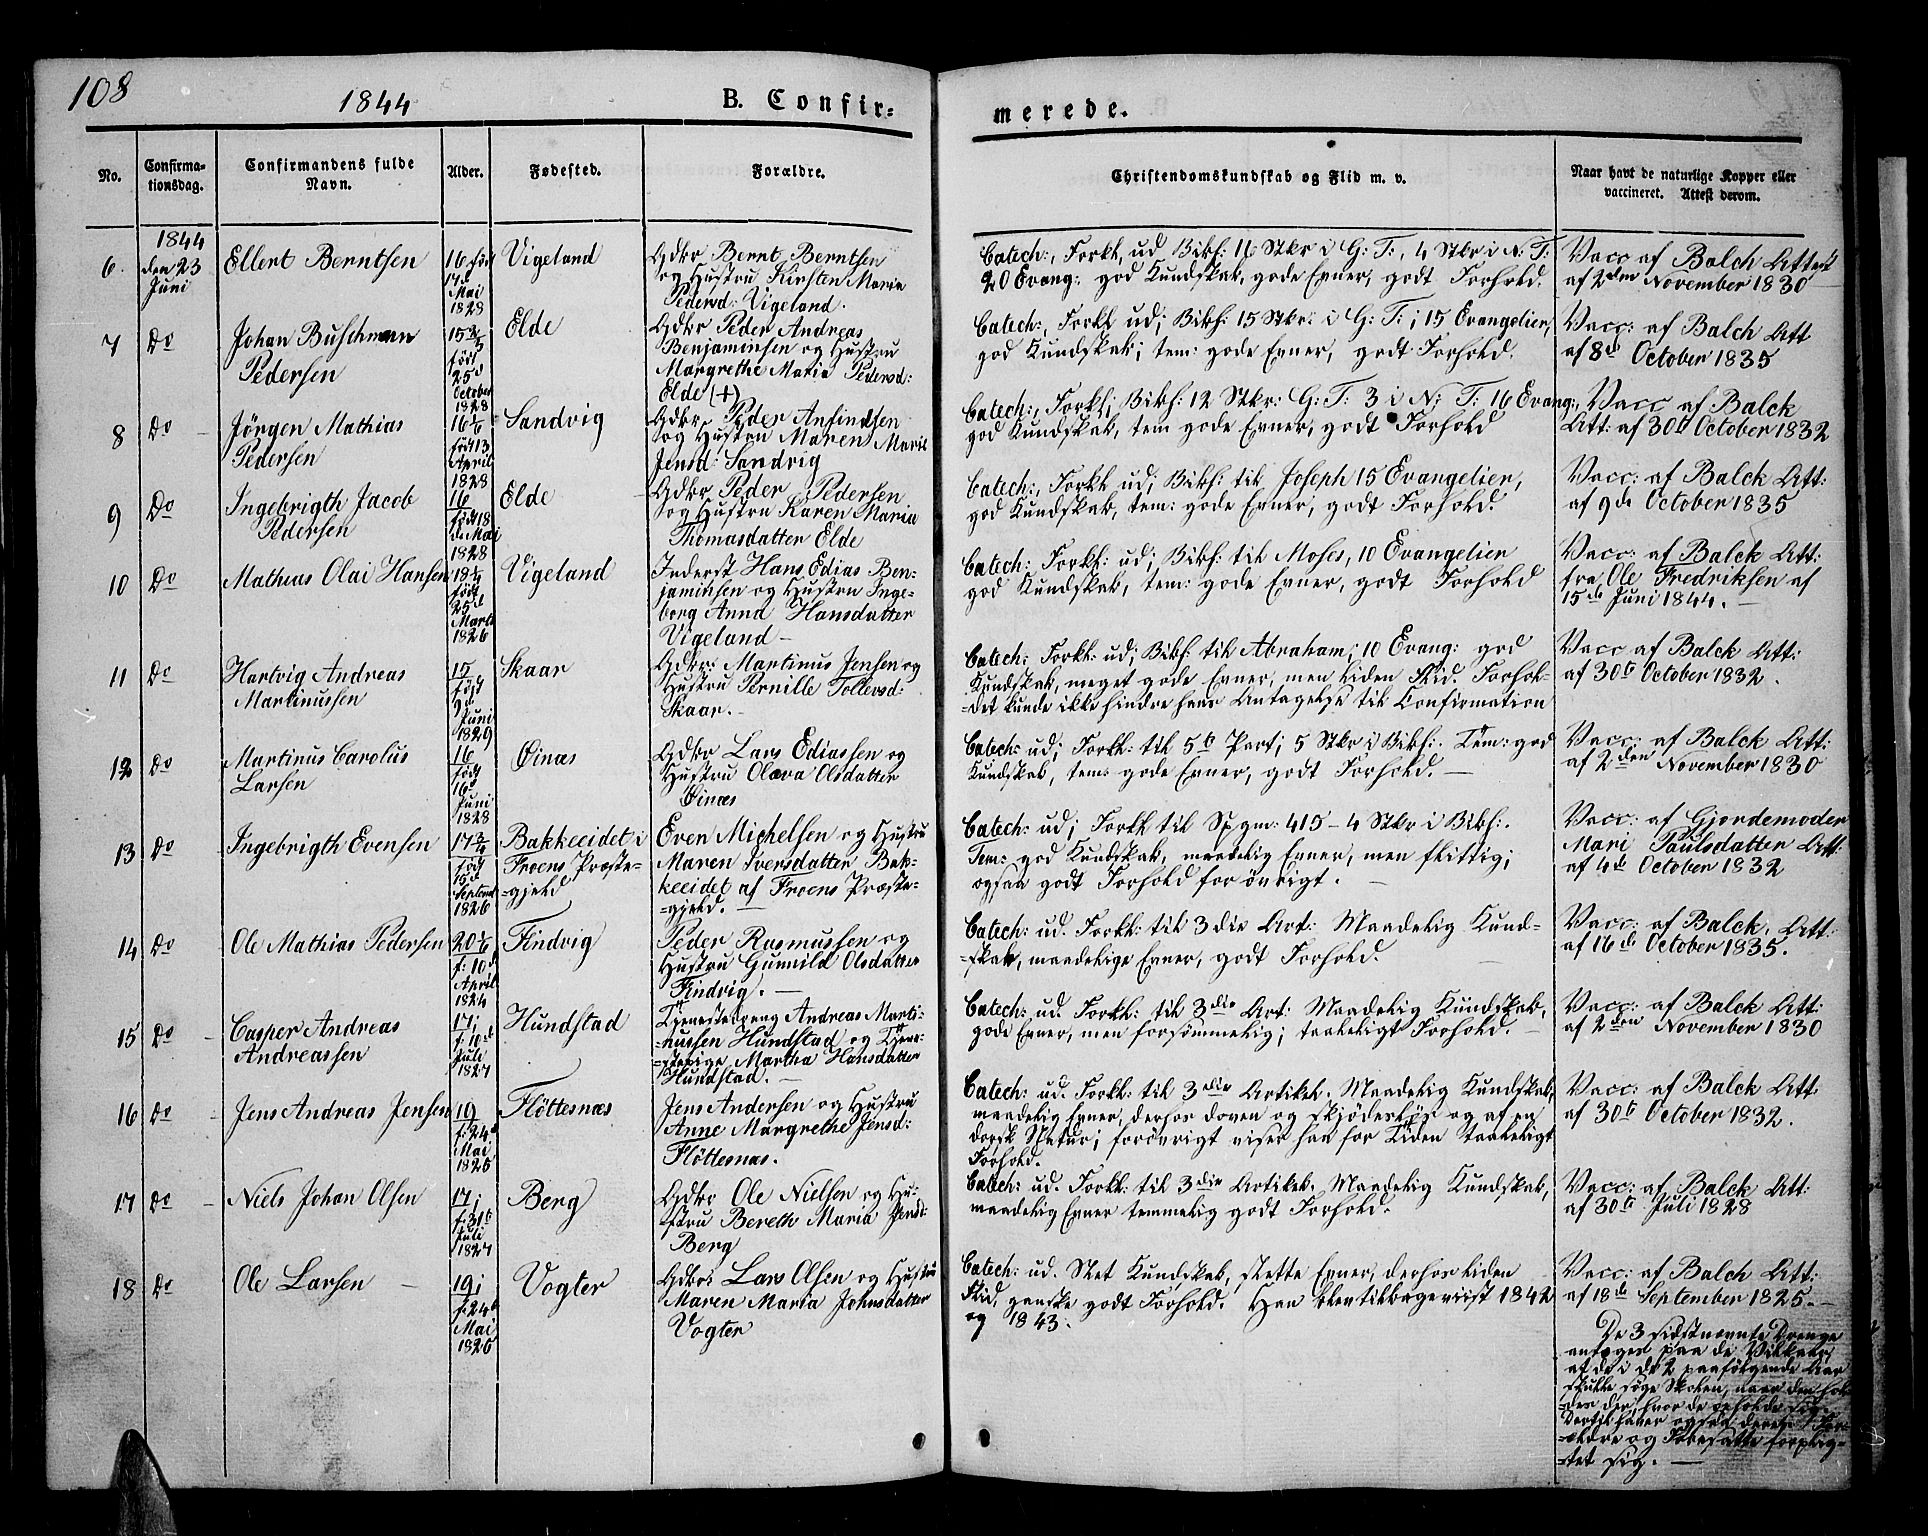 108
1844
B. Confir-
merede.
No.
Confirma-
tionsdag.
Confirmandens fulde
Navn.
Alder.
Fødested.
Forældre.
Christendomskundskab og Flid m. v.
Naar havt de naturlige Kopper eller
vaccineret. Attest derom.
6.
1844
den 23
Juni
Ellert Berntsen
16 fød
17d
Mai
1828
Vigeland
Gdbr Bernt Berntsen
og Hustru Kirsten Maria
Pedersd: Vigeland.
Catech:, Forkl. ud, Bibh: 16 Stkr i G: T:, 4 Stkr i N: T:
20 Evang: god Kundskab, gode Evner, godt Forhold.
Vacc af Balch Attest
af 2den November 1830
7
Do
Johan Buschman
Pedersen
15 2/3
født
25d
October
1828
Elde
Gdbr Peder Andreas
Benjaminsen og Hustru
Margrethe Maria Pedersd:
Elde (+)
Catech:, Forkl ud; Bibh: 15 Stkr: i G: T:; 15 Evangelier,
god Kundskab; tem: gode Evner, godt Forhold.
Vacc: af Balch Att
af 8d October 1835
8
Do
Jörgen Mathias
Pedersen
16 1/6
født 13
April
1828
Sandvig
Gdbr Peder Anfindsen
og Hustru Maren Marie
Jensd: Sandvig
Catech:, Forkl; Bibh: 12 Stkr: G: T: 3 i N: T: 16 Evang:,
god Kundskab, tem gode Evner, godt Forhold
Vacc af Balck
Att: af 30te October 1832
9
Do
Ingebrigth Jacob
Pedersen
16
født 18
de Mai
1828
Elde
Gdbr Peder Pedersen
og Hustru Karen Maria
Thomasdatter Elde
Catech:, Forkl ud; Bibh: til Joseph 15 Evangelier,
god Kundskab, tem: gode Evner, godt Forhold.
Vacc: af Balck Att:
af 9de October 1835
10
Do
Mathias Olai Hansen
18 1/4
født
25d
Marts
1826
Vigeland
Inderst Hans Edias Ben-
jaminsen og Hustru Inge-
borg Anna Hansdatter
Vigeland
Catech: Forkl: ud; Bibh: til Moses, 10 Evangelier
god Kundskab, tem: gode Evner, godt Forhold
Vacc: af Balck Att:
fra Ole Fredriksen af
15de Juni 1844.
11
Do
Hartvig Andreas
Martinussen
15
født
9d
Juni
1829
Skaar
Gdbr: Martinus Jensen og
Hustru Pernille Tollevsd:
Skaar.
Catech: Forkl: ud; Bibh til Abraham; 10 Evang: god
Kundskab, meget gode Evner, men liden Flid. Forhol-
-det kunde ikke hindre hans Antagelse til Confirmation
Vacc af Balck Att:
af 30te October 1832.
12
Do
Martinus Carolus
Larsen
16
født
16
Juni
1828
Øinæs
Gdbr Lars Ediassen og
Hustru Olava Olsdatter
Øinæs
Catech: ud; Forkl: til 5te Part; 5 Stkr i Bibh:. Tem: god
Kundskab, tem: gode Evner, godt Forhold.
Vacc: af Balck Att:
af 2den November 1830
13
Do
Ingebrigth Evensen
17 3/4
født
15d
Septemb
1826
Bakkeeidet i
Froens Præste-
-gjeld
Even Michelsen og Hustru
Maren Iversdatter Bak-
keeidet af Froens Præste-
-gjeld.
Catech: ud; Forkl til Spgm: 415 - 4 Stkr i Bibh:.
Tem: god Kundskab, maadelig Evner, men flittig;
ogsaa godt Forhold for övrigt.
Vacc: af Gjordemoder
Mari Paulsdatter Att:
af 4de October 1832
14
Do
Ole Mathias Pedersen
20 1/6
f: 10d
April
1824
Findvig
Peder Rasmussen og
Hustru Gunnild Olsdatter
Findvig.
Catech: ud. Forkl: til 3die Art: Maadelig Kund-
-skab, maadelige Evner, godt Forhold.
Vacc: af Balck, Att:
af 16de October 1835.
15
Do
Casper Andreas
Andreassen
17;
f: 10d
Juli
1827
Hundstad
Tjenestedreng Andreas Marti-
nussen Hundstad og Tjene-
-stepige Martha Hansdatter
Hundstad.
Catech: ud. Forkl: til 3die Art: Maadelig Kundskab,
gode Evner, men forsömmelig; taaleligt Forhold.
Vacc: af Balck Att:
af 2den November 1830
16
Do
Jens Andreas Jensen
19
f: 24d
Mai
1825
Flöttesnæs
Jens Andersen og Hustru
Anne Margrethe Jensd:
Flöttesnæs.
Catech: ud. Forkl: til 3die Artikel. Maadelig Kundskab,
maadelig Evner, derhos doven og skjödeslös og af en
dorsk Natur; forövrigt viser han for Tiden taaleligt
Forhold.
Vacc: af Balck Att:
af 30te October 1832.
17
Do
Niels Johan Olsen
17;
f: 31te
Juli
1827
Berg
Gdbr Ole Nielsen og Hu-
stru Bereth Maria Jensd:
Berg
Catech: ud. Forkl: til 3die Artikel. Maadelig Kundskab,
maadelig Evner temmelig godt Forhold.
Vacc: af Balck Att:
af 30te Juli 1828
18
Do
Ole Larsen
19;
f: 24d
Mai
1825
Vogter
Gdbr: Lars Olsen og Hustru
Maren Maria Johnsdatter
Vogter
Catech: ud. Slet Kundskab, slette Evner, derhos liden
Flid, ganske godt Forhold. Han blev tilbageviist 1842
og 1843.
Vacc: af Balch Att:
af 18de September 1825.
De 3 sidstnævnte Drenge
antoges paa de Vilkaar
at de i de 2 paafölgende Aar
skulle söge Skolen, naar den hol-
des der, hvor de opholde sig.
Dertil haver ogsaa deres For-
-ældre og Foresatte forplig-
-tet sig.